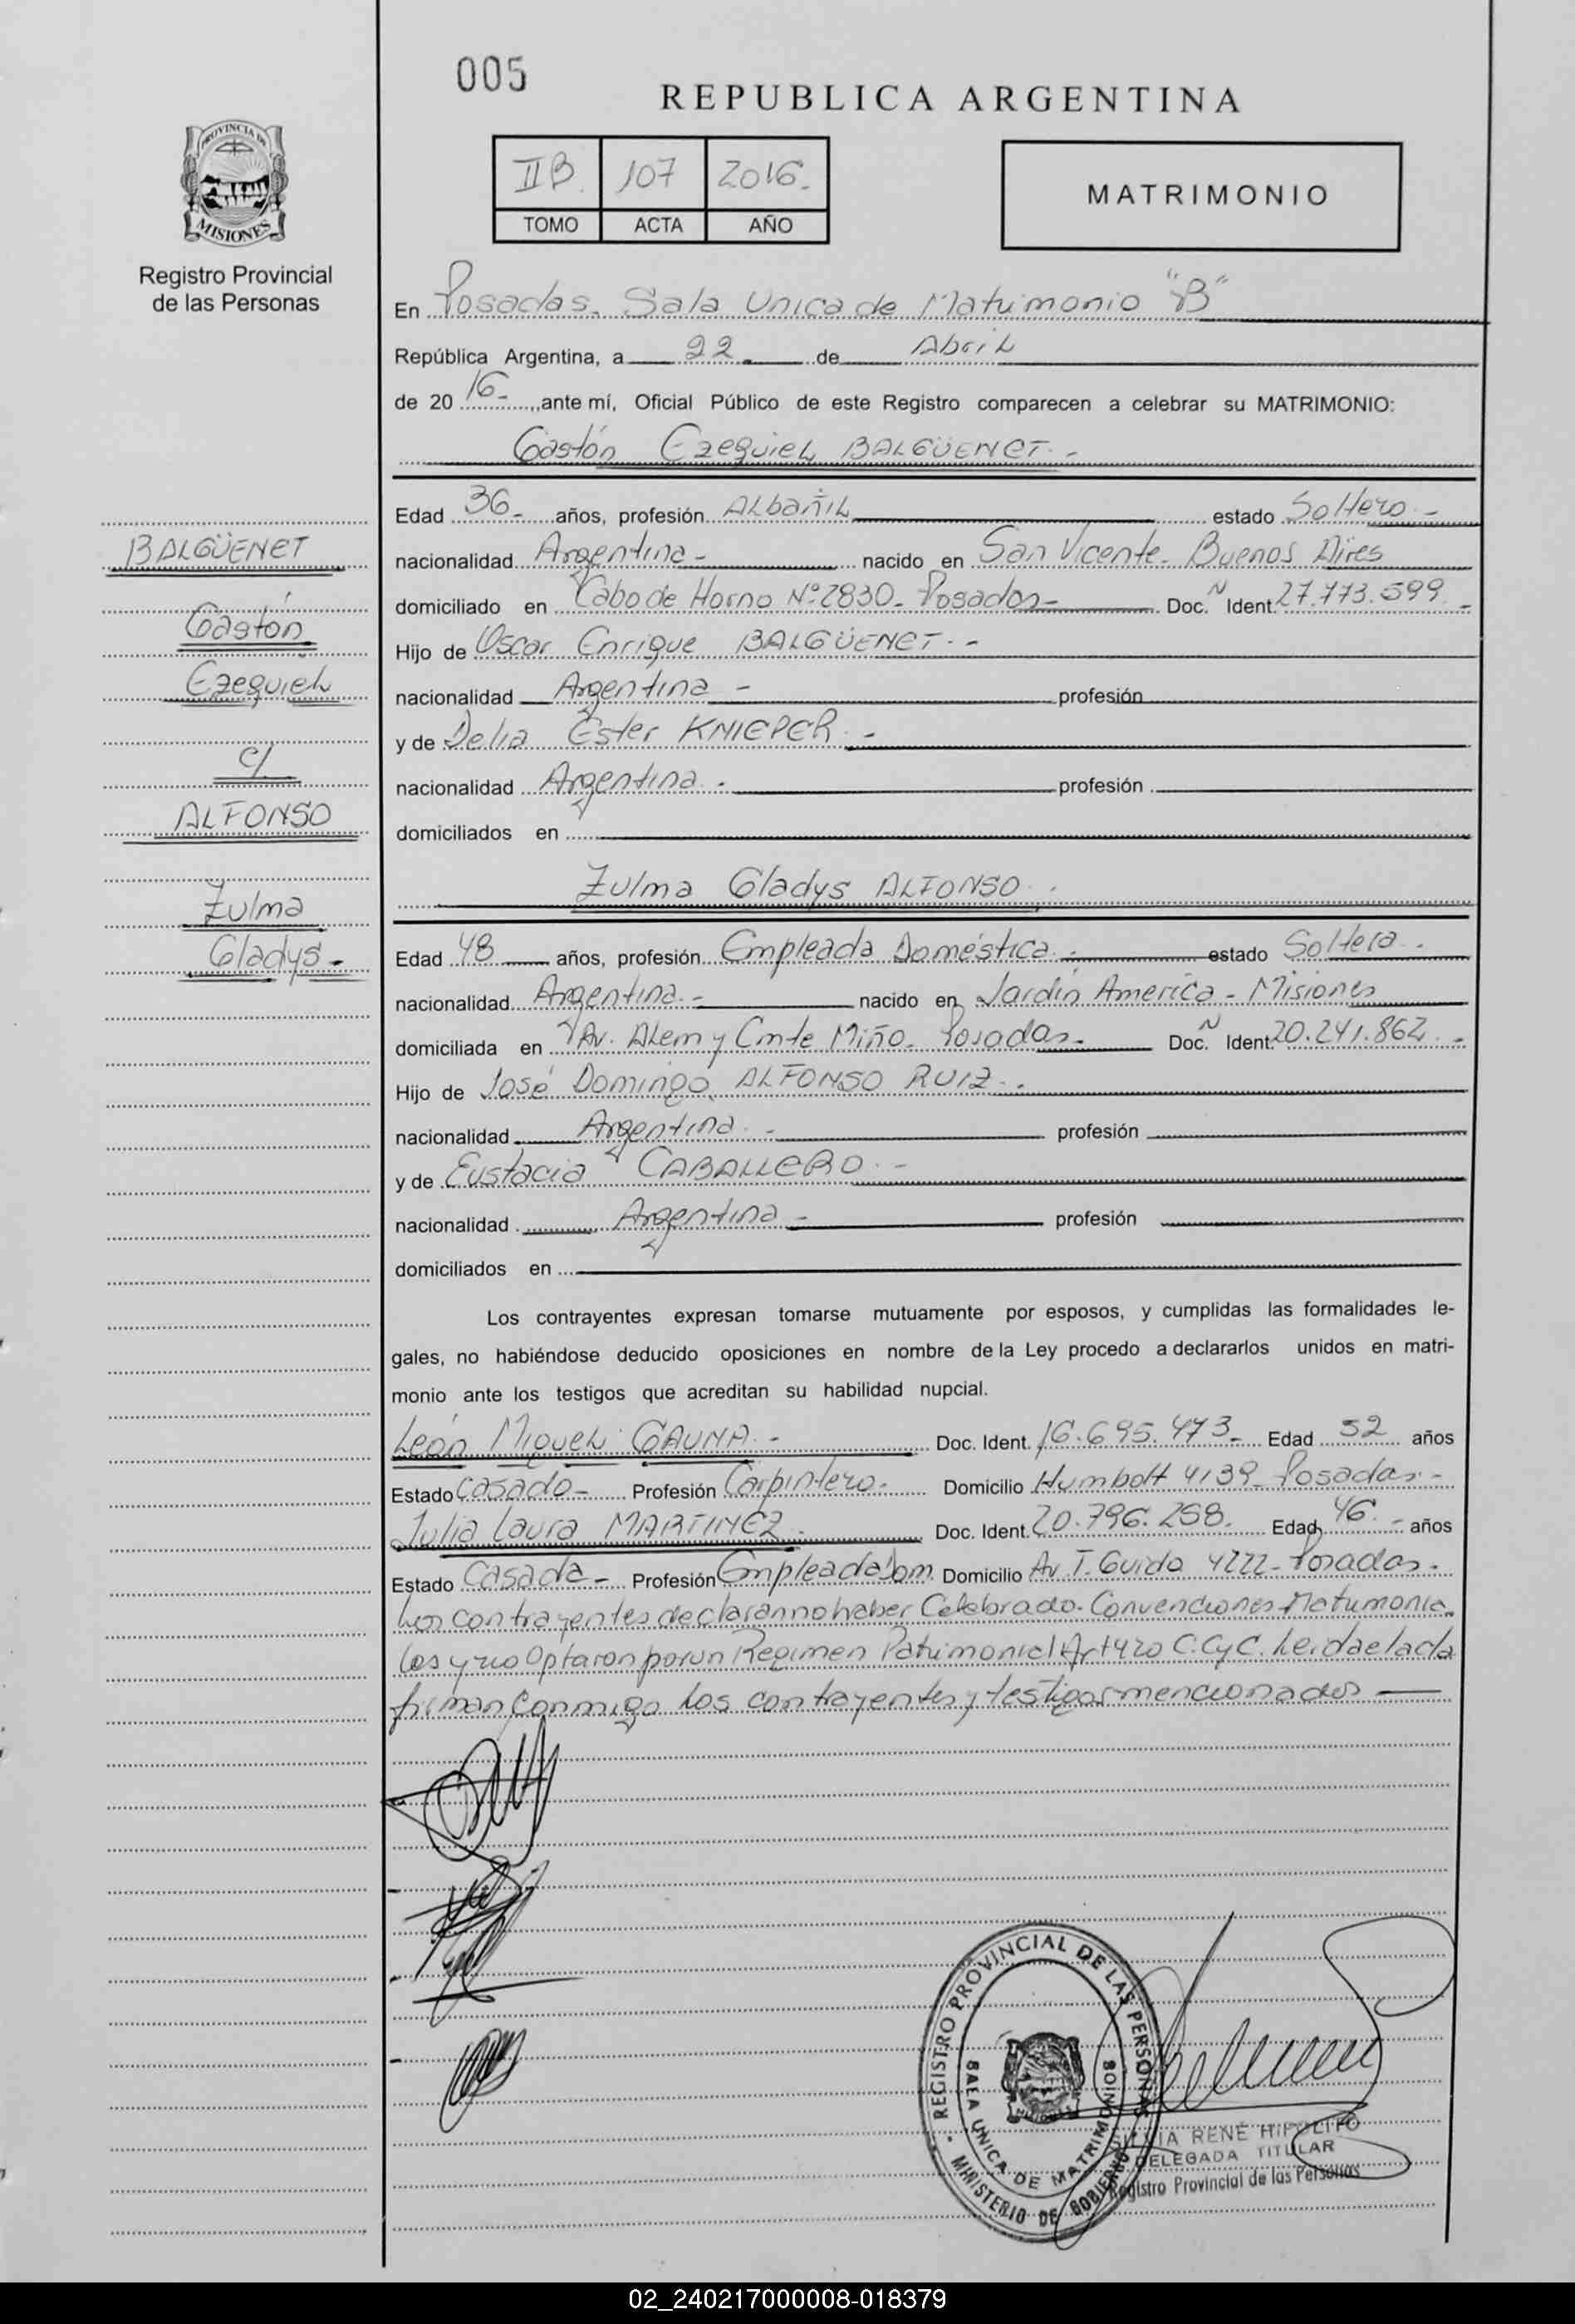 005
REPUBLICA ARGENTINA
II B. 107 2016.
TOMO ACTA AÑO
MATRIMONIO
PROVINCIA DE
MISIONES
Registro Provincial
de las Personas
En Posadas. Sala Unica de Matrimonio "B"
República Argentina, a 22 de Abril
de 20 16- ante mí, Oficial Público de este Registro comparecen a celebrar su MATRIMONIO:
Gastón Ezequiel BALGÜENET.-
Edad 36- años, profesión ALbañiL estado Soltero-
nacionalidad Argentina- nacido en San Vicente. Buenos Aires
domiciliado en Cabo de Horno Nº 2830- Posadas- Doc. N Ident. 27.773.599.-
Hijo de Oscar Enrique BALGÜENET.-
nacionalidad Argentina - profesión
y de Delia Ester KNIEPER.-
nacionalidad Argentina. profesión
domiciliados en
Zulma Gladys ALFONSO.
Edad 48 años, profesión Empleada Doméstica. estado Soltera.
nacionalidad Argentina.- nacido en Jardín América - Misiones
domiciliada en Av. Alem y Cmte Miño- Posadas- Doc. N Ident. 20.241.862.-
Hijo de José Domingo ALFONSO RUIZ.
nacionalidad Argentina.- profesión
y de Eustacia CABALLERO.-
nacionalidad Argentina- profesión
domiciliados en
BALGÜENET
Gastón
Ezequiel
c/
ALFONSO
Zulma
Gladys-
Los contrayentes expresan tomarse mutuamente por esposos, y cumplidas las formalidades le-
gales, no habiéndose deducido oposiciones en nombre de la Ley procedo a declararlos unidos en matri-
monio ante los testigos que acreditan su habilidad nupcial.
León Miguel GAUNA.- Doc. Ident. 16.695.473- Edad 52 años
Estado Casado- Profesión Carpintero. Domicilio Humbolt 4139- Posadas.-
Julia Laura MARTINEZ. Doc. Ident. 20.796.258. Edad 46.- años
Estado Casada- Profesión Empleada Dom. Domicilio Av. T. Guido 4222- Posadas.
Los contrayentes declaran no haber Celebrado Convenciones Matrimonia
les y no Optaron por un Regimen Patrimonial Art 420 C.C y C. Leida el acta
firman conmigo los contrayentes y testigos mencionados
REGISTRO PROVINCIAL DE LAS PERSONAS
SALA UNICA DE MATRIMONIOS
MINISTERIO DE GOBIERNO
RENÉ HIPOLITO
DELEGADA TITULAR
Registro Provincial de las Personas
02_240217000008-018379